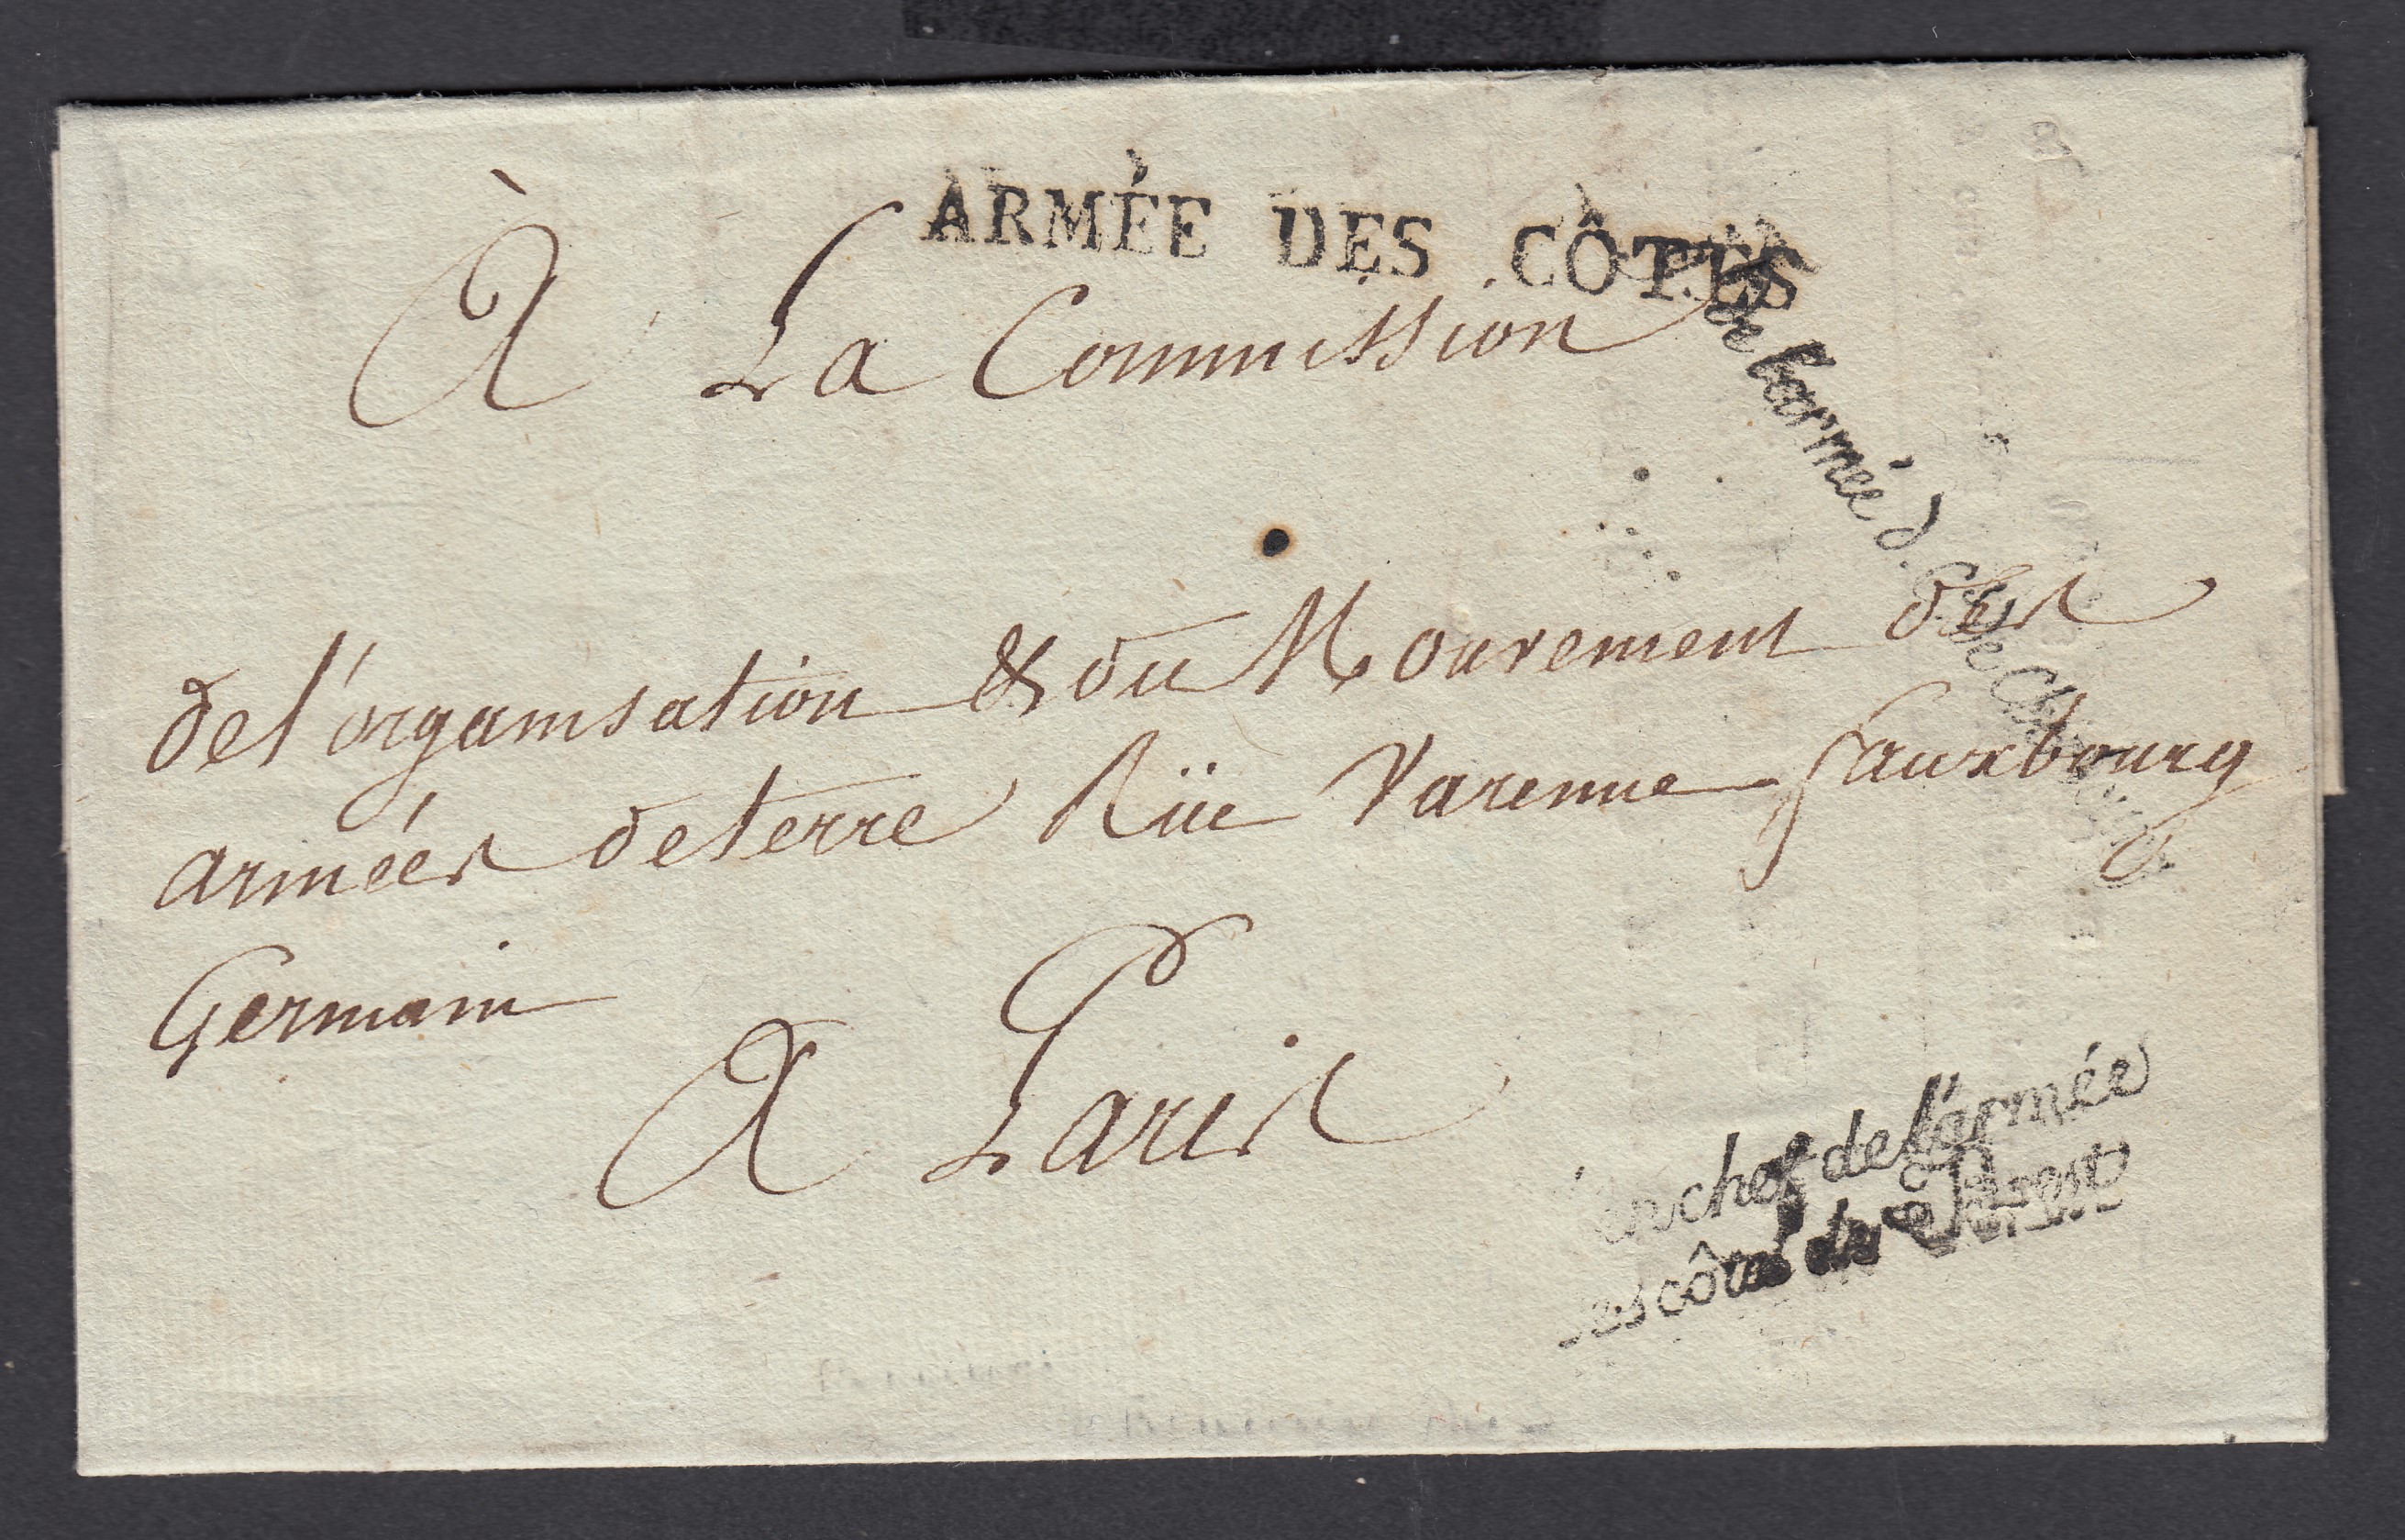 ARMÉE DES CÔTES
À La Commission
de l'armée d. Côtes de Ch
de l'organisation & du Mouvement des
armées de terre Rüe Varenne fauxbourg
Germain
A Paris
en chef de l'armée
des côtes de Brest